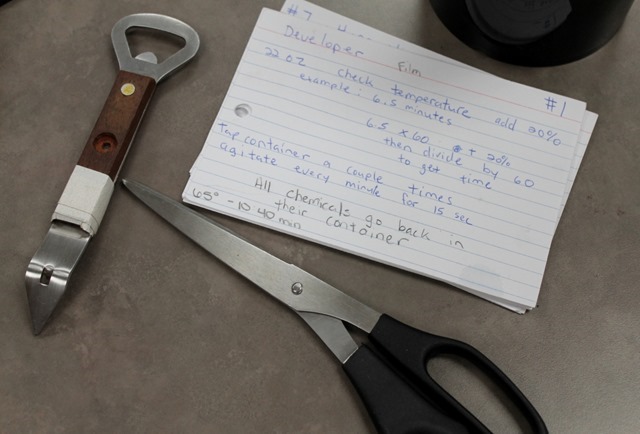 #7
Developer
Film
#1
22 oz check temperature add 20%
example: 6.5 minutes
6.5 x 60 + 20%
then divide by 60
to get time
Tap container a couple times
agitate every minute for 15 sec
All chemicals go back in
their container
65° - 10:40 min